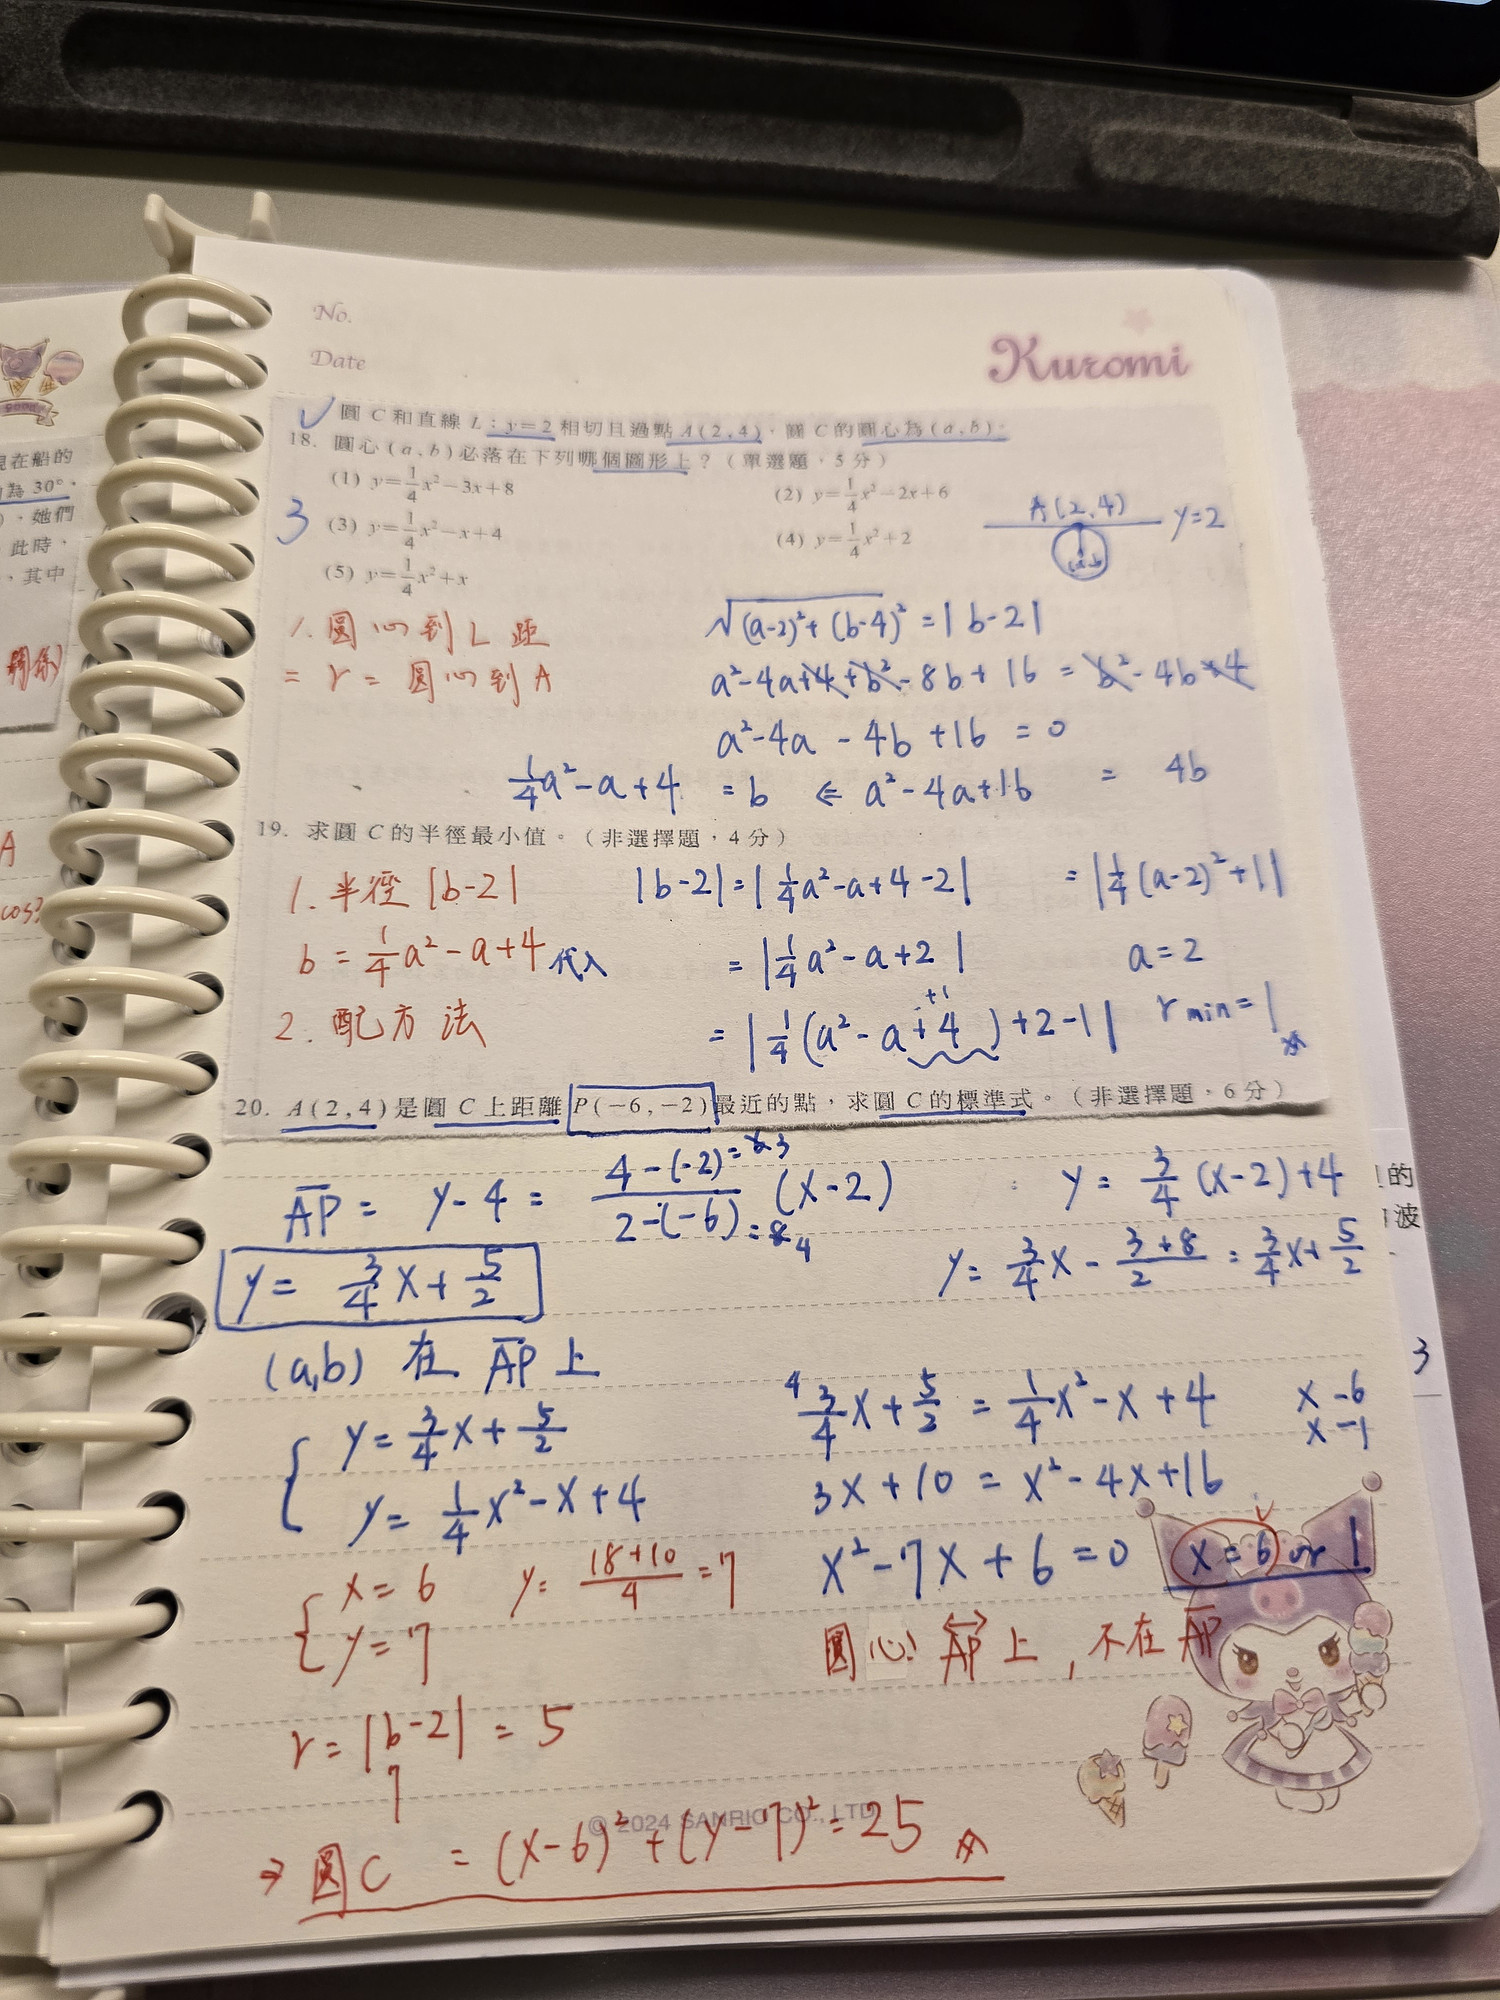 No.
Date
Kuromi
圓 C 和直線 L：y=2 相切且過點 A(2,4)，圓 C 的圓心為(a,b)。
18. 圓心(a,b)必落在下列哪個圖形上？（單選題，5分）
(1) y=1/4x²-3x+8
(2) y=1/4x²-2x+6
3
(3) y=1/4x²-x+4
(4) y=1/4x²+2
(5) y=1/4x²+x
A(2,4)
y=2
1. 圓心到 L 距
= r = 圓心到 A
√(a-2)²+(b-4)² = |b-2|
a²-4a+4+b²-8b+16 = b²-4b+4
a²-4a-4b+16 = 0
1/4a²-a+4 = b ⇐ a²-4a+16 = 4b
19. 求圓 C 的半徑最小值。（非選擇題，4分）
1. 半徑 |b-2|
b = 1/4a²-a+4 代入
2. 配方法
|b-2| = |1/4a²-a+4-2|
= |1/4a²-a+2|
+1
= |1/4(a²-a+4)+2-1|
= |1/4(a-2)²+1|
a=2
r min = 1
20. A(2,4)是圓 C 上距離 P(-6,-2)最近的點，求圓 C 的標準式。（非選擇題，6分）
AP = y-4 = 4-(-2)/2-(-6) (x-2)
=6 3
=8 4
y = 3/4(x-2)+4
y = 3/4x - 3+8/2 = 3/4x+5/2
y = 3/4x+5/2
(a,b) 在 AP 上
y = 3/4x+5/2
y = 1/4x²-x+4
4 3/4x+5/2 = 1/4x²-x+4
x -6
x -1
3x+10 = x²-4x+16
x²-7x+6 = 0
x=6 or 1
x = 6
y = 7
y = 18+10/4 = 7
圓心 AP 上，不在 AP
r = |b-2| = 5
7
© 2024 SANRIO CO., LTD
⇒ 圓C = (x-6)²+(y-7)² = 25
現在船的
為 30°，
，她們
此時，
，其中
關係
A
cos
的
波
3